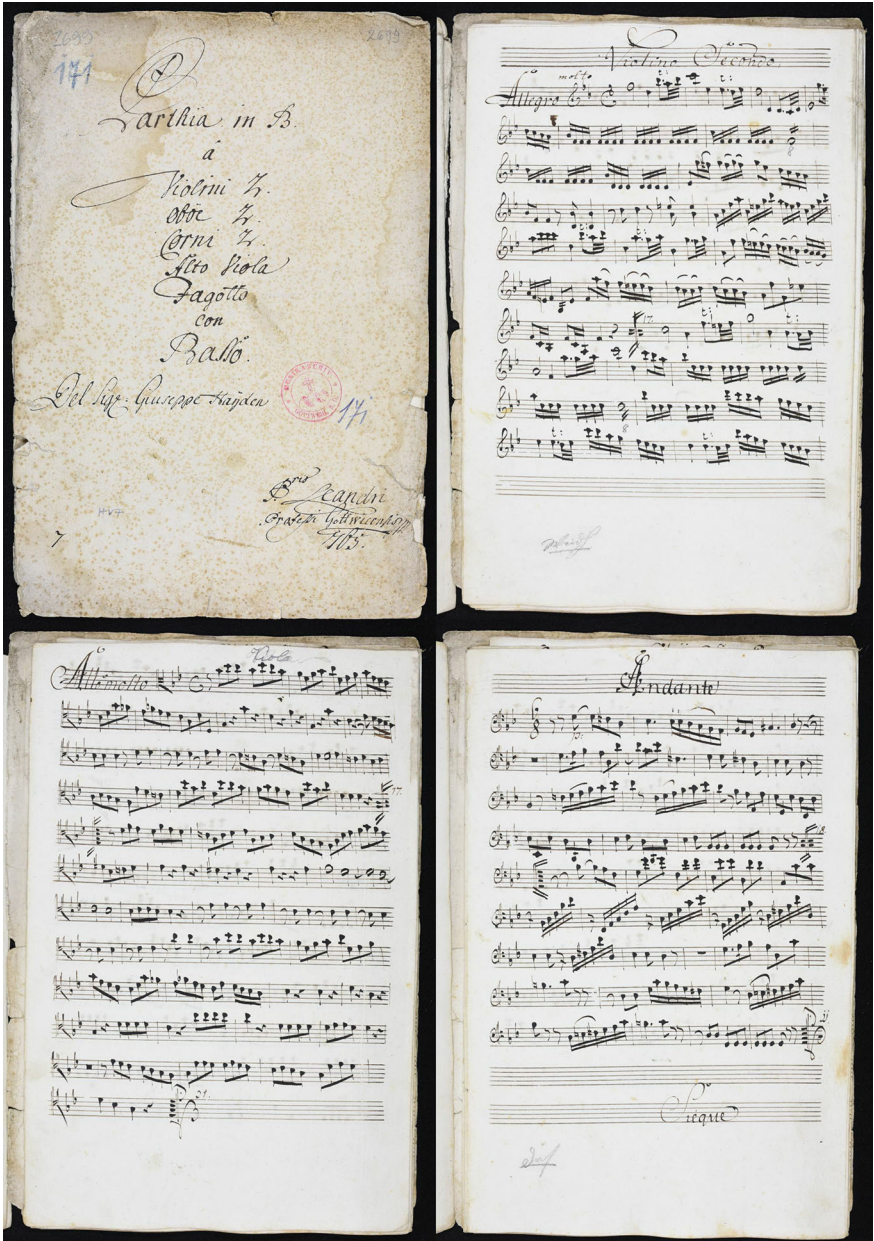 2699
2699
171
Parthia in B.
á
Violini 2.
Oboe 2.
Corni 2.
Alto Viola
Fagotto
con
Basso.
Del Sigr: Giuseppe Haÿden
171
P. Leandri
Professi Gottwicensis
7
Violino Secondo
molto
Allegro
t:
t:
8
17
t:
t:
8
t:
t:
Viola
Allo molto
17
31.
Andante
Sieque